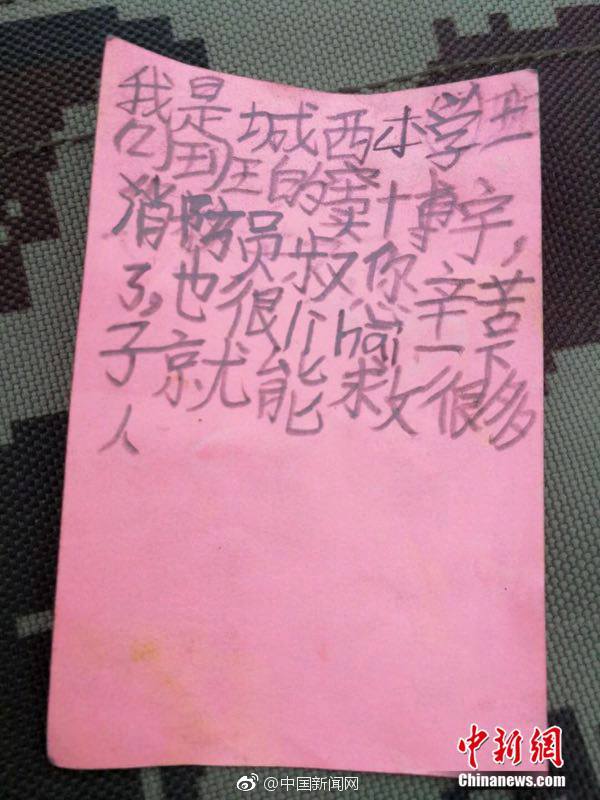 我是城西小学二
(4)班的窦博宇,
消防员叔叔你辛苦
了,也很厉hai一下
子就能救很多
人
@中国新闻网
中新網
Chinanews.com